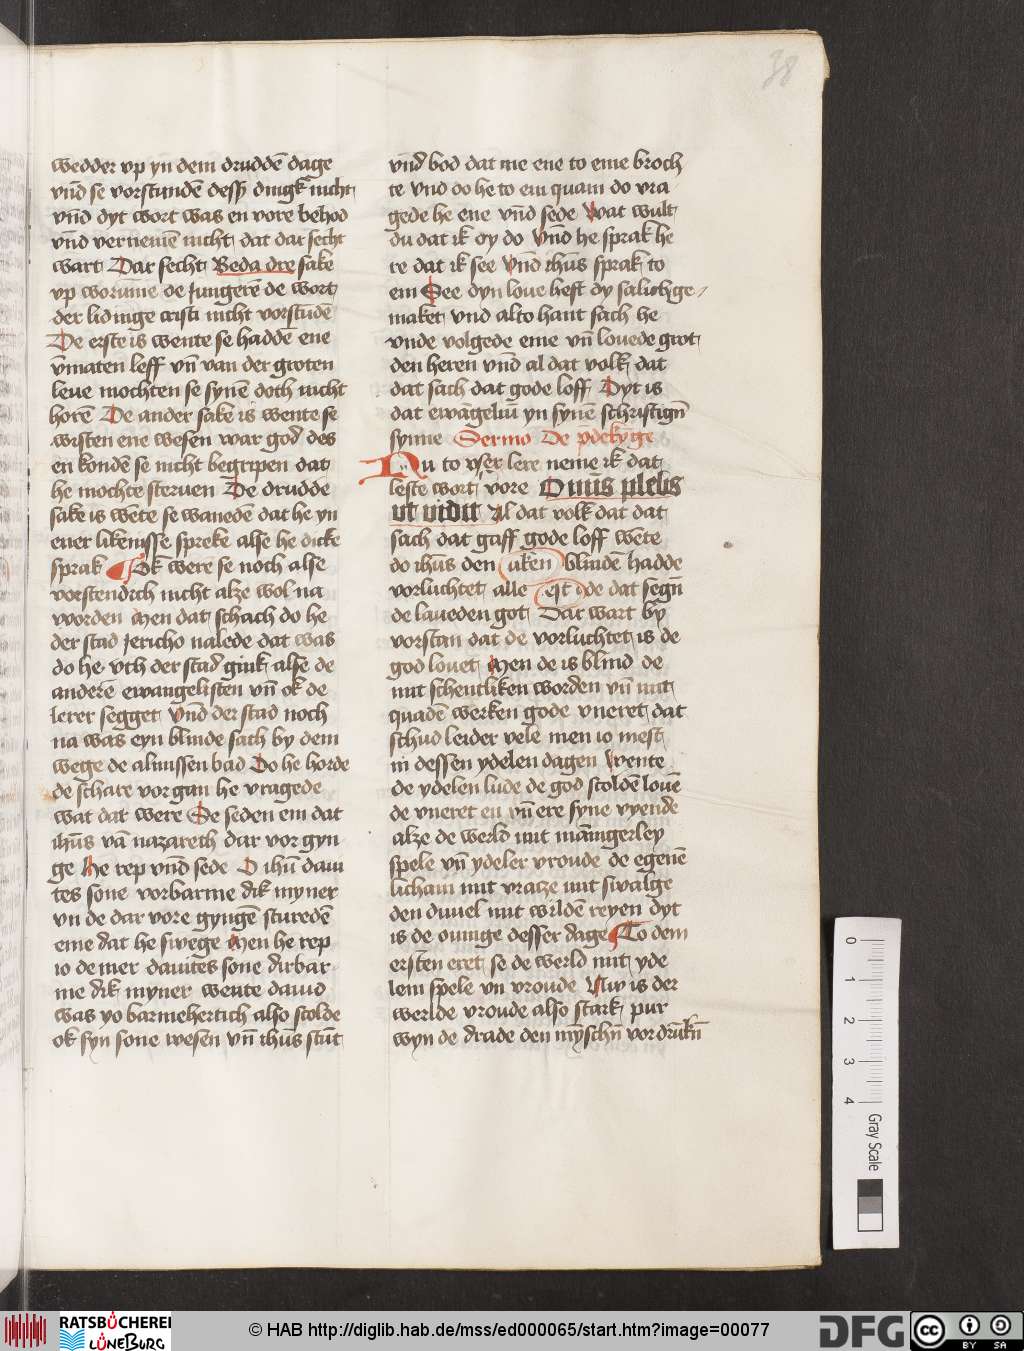 38
wedder vp yn dem druddē dage
vn̄d se vorstundē desß dingk nicht
vn̄d dyt wort was en vore behod
vn̄d vernemē nicht dat dar secht
wart Dar secht Beda dre sake
vp worume de Jungerē de wort
der lidinge cristi nicht vorstudē
De erste is wente se haddē ene
vmaten leff vn̄ van der groten
leue mochten se synē doth nicht
horē De ander sake is wente se
wisten ene wesen war god des
en kondē se nicht begripen dat
he mochte steruen De drudde
sake is wēte se wanedē dat he yn
ener likenisse spreke alse he dicke
sprak Ok were se noch alse
vorstendich nicht alze wol na
worden Men dat schach do he
der stad Jericho nalede dat was
do he vth der stad gink alse de
anderē ewangelisten vn̄ ok de
lerer segget vn̄d der stad noch
na was eyn blinde sath by dem
wege de almissen bad Do he horde
de schare vor gan he vragede
wat dat were Se seden em dat
ihūs vā nazareth dar vor gyn
ge He rep vn̄d sede O ihū daui
tes sone vorbarme dik myner
vn de dar vore gyngē sturedē
eme dat he swege Men he rep
io de mer dauites sone dirbar
me dik myner wente dauid
was yo barmehertich also scolde
ok syn sone wesen vn̄ ihūs stūt
vn̄d bod dat me ene to eme broch
te vnd do he to em quam do vra
gede he ene vn̄d sede wat wult
du dat ik dy do vn̄d he sprak he
re dat ik see vn̄d ihūs sprak to
em See dyn loue heft dy salich ge
maket vnd alto hant sach he
vnde volgede eme vn̄ louede grot
den heren vn̄d al dat volk dat
dat sach dat gode loff Dyt is
dat ewāgeliū yn synē schriftign̄
synne Sermo De p̄dekyge
Nu to vser lere neme ik dat
leste wort vore Omīs plebs
vt vidit Al dat volk dat dat
sach dat gaff gode loff wēte
do ihūs den blindē hadde
vorluchtet alle de dat segn̄
de laueden got Dar wart by
vorstan dat de vorluchtet is de
god louet Men de is blind de
mit scheutliken worden vn̄ mit
quadē werken gode vneret dat
schud leider vele men io mest
in dessen ydelen dagen wente
de ydelen lude de god scoldē louē
de vneret en vn̄ ere syne vyende
alze de werld mit mānigerley
spele vn̄ ydeler vroude de egenē
licham mit vratze mit swalge
den duuel mit wildē reyen dyt
is de ouinge desser dage To dem
ersten eret se de werld mit yde
lem spele vn vroude Nw is der
werlde vroude also stark pur
wyn de drade den mȳschn̄ vordrūkn̄
0
1
2
3
4
Gray Scale
RATSBÜCHEREI
LÜNEBURG
© HAB http://diglib.hab.de/mss/ed000065/start.htm?image=00077
DFG
cc
BY
SA